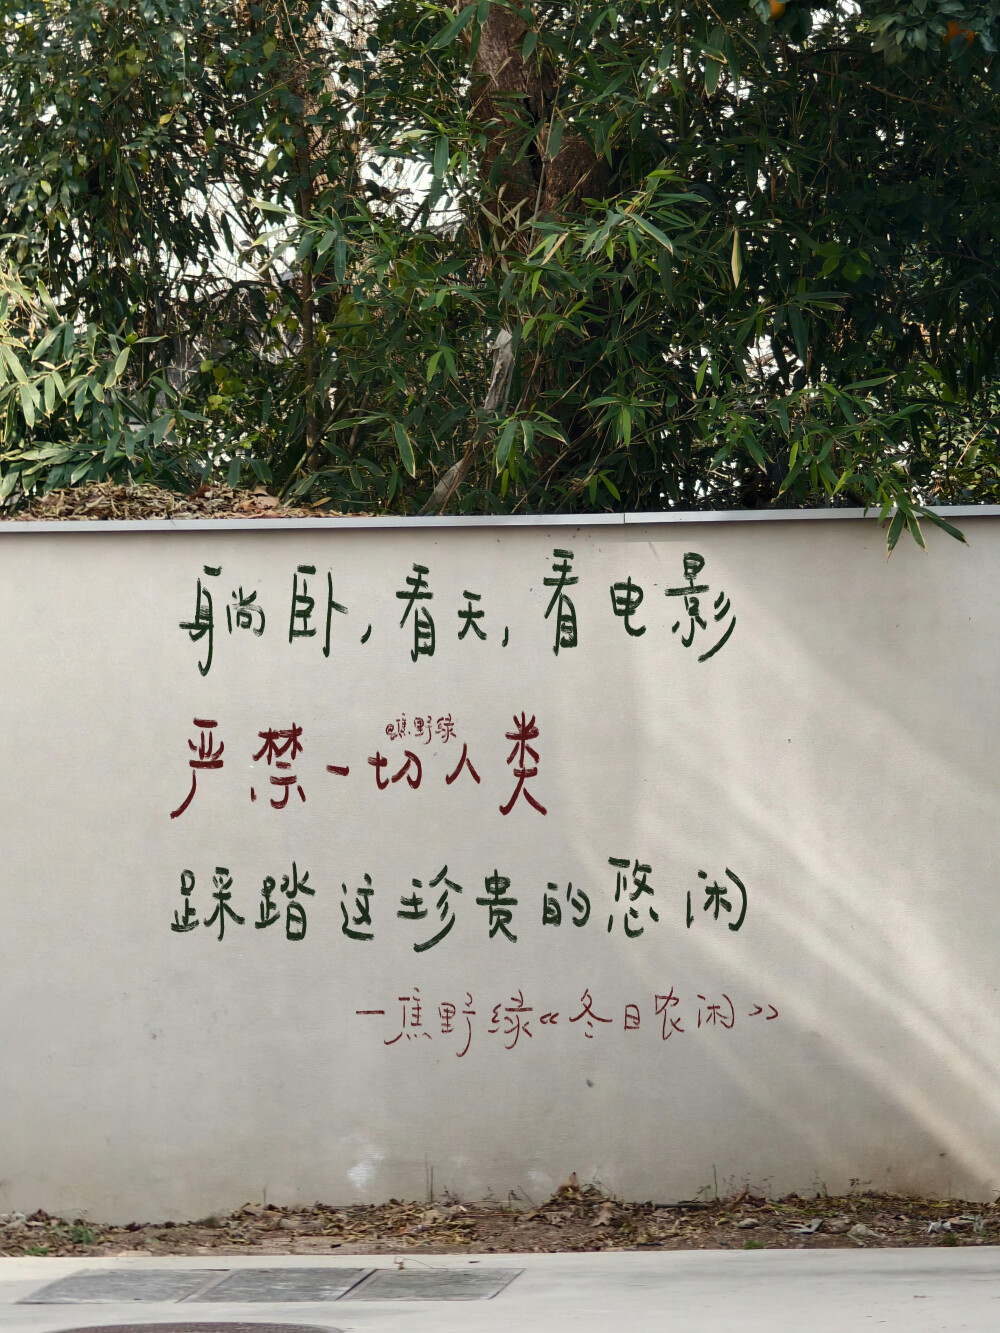 躺卧，看天，看电影
@焦野绿
严禁一切人类
踩踏这珍贵的悠闲
—焦野绿《冬日农闲》